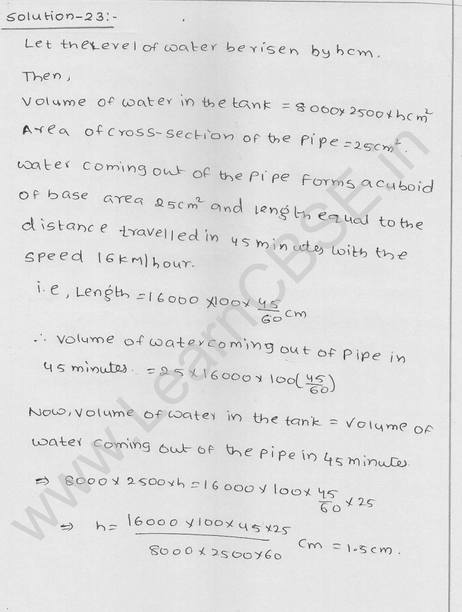 Solution-23:-
Let the Level of water be risen by hcm.
Then,
Volume of water in the tank = 8000×2500×hcm²
Area of cross-section of the pipe = 25cm².
Water coming out of the pipe forms a cuboid
of base area 25cm² and length equal to the
distance travelled in 45 minutes with the
speed 16km/hour.
i.e, Length = 16000×100×45/60 cm
∴ Volume of water coming out of pipe in
45 minutes = 25×16000×100(45/60)
Now, volume of water in the tank = Volume of
water coming out of the pipe in 45 minutes
⇒ 8000×2500×h = 16000×100×45/60×25
⇒ h = 16000×100×45×25/8000×2500×60 cm = 1.5cm.
www.LearnCBSE.in